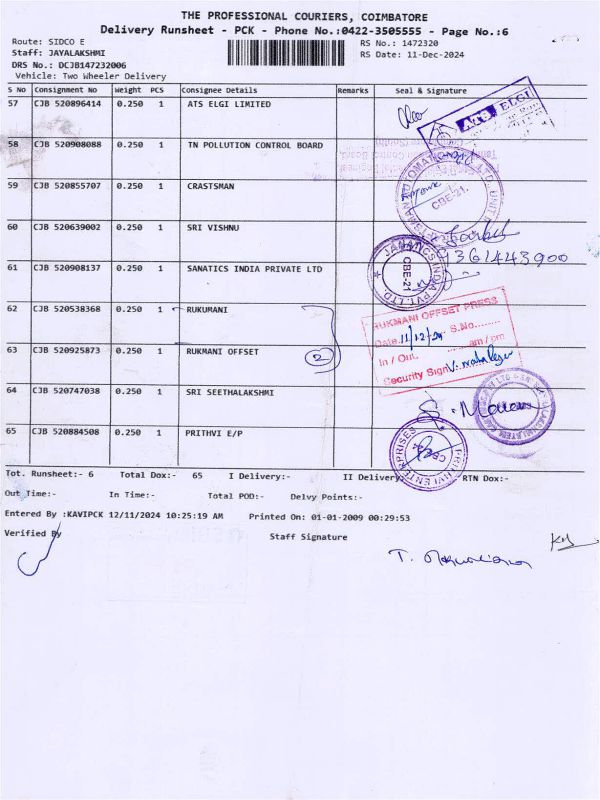 THE PROFESSIONAL COURIERS, COIMBATORE
Delivery Runsheet - PCK - Phone No.:0422-3505555 - Page No.:6
Route: SIDCO E
RS No.: 1472320
Staff: JAYALAKSHMI
RS Date: 11-Dec-2024
DRS No.: DCJB147232006
Vehicle: Two Wheeler Delivery
S No Consignment No Weight PCS Consignee Details Remarks Seal & Signature
57 CJB 520896414 0.250 1 ATS ELGI LIMITED
ATS ELGI
58 CJB 520908088 0.250 1 TN POLLUTION CONTROL BOARD
59 CJB 520855707 0.250 1 CRASTSMAN
CBE-21.
60 CJB 520639002 0.250 1 SRI VISHNU
361443900
61 CJB 520908137 0.250 1 SANATICS INDIA PRIVATE LTD
JANATICS INDIA PVT. LTD.
CBE-21
62 CJB 520538368 0.250 1 RUKUMANI
RUKMANI OFFSET PRESS
Date 11/12/24 S.No.........
63 CJB 520925873 0.250 1 RUKMANI OFFSET
2
In / Out. ........am / pm
Security Sign
64 CJB 520747038 0.250 1 SRI SEETHALAKSHMI
65 CJB 520884508 0.250 1 PRITHVI E/P
PRITHVI ENTERPRISES
Tot. Runsheet:- 6 Total Dox:- 65 I Delivery:- II Delivery:- RTN Dox:-
Out Time:- In Time:- Total POD:- Delvy Points:-
Entered By :KAVIPCK 12/11/2024 10:25:19 AM Printed On: 01-01-2009 00:29:53
Verified By Staff Signature